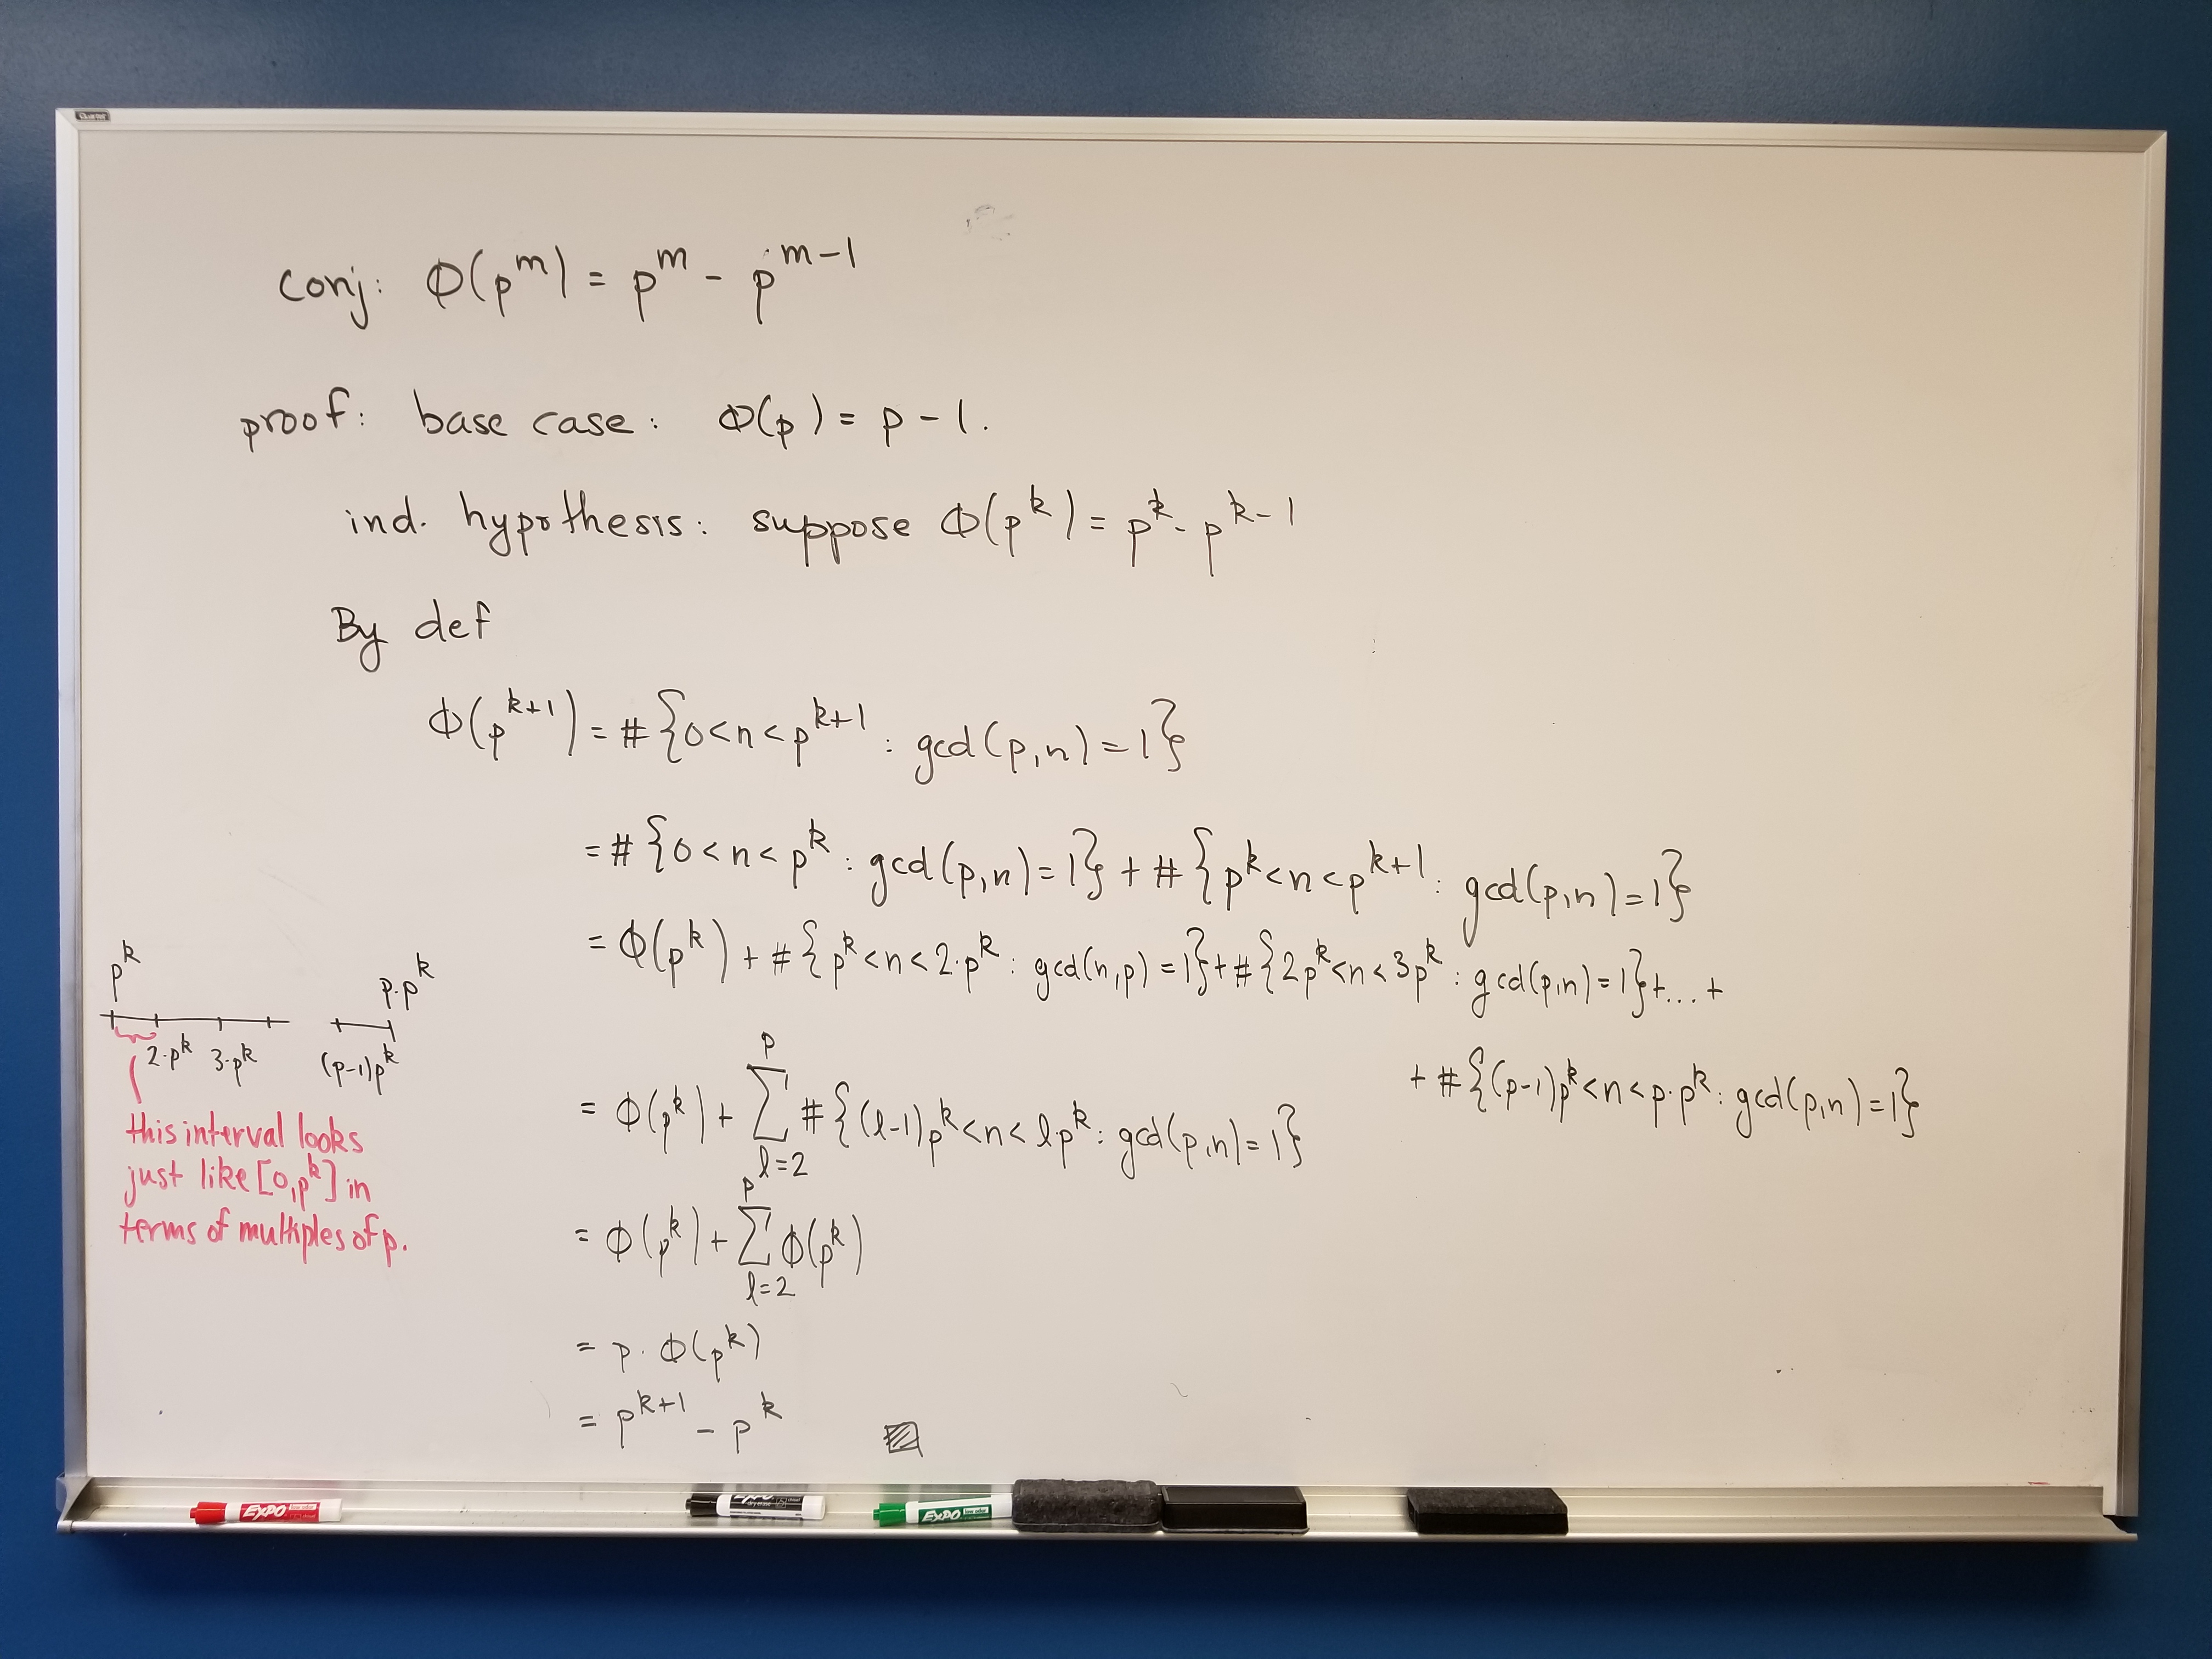 conj: Φ(p^m) = p^m - p^{m-1}
proof: base case: Φ(p) = p - 1.
ind. hypothesis: suppose Φ(p^k) = p^k - p^{k-1}
By def
Φ(p^{k+1}) = #{0<n<p^{k+1} : gcd(p,n) = 1}
= #{0<n<p^k : gcd(p,n) = 1} + #{p^k<n<p^{k+1} : gcd(p,n) = 1}
= Φ(p^k) + #{p^k<n<2·p^k : gcd(n,p) = 1} + #{2p^k<n<3p^k : gcd(p,n) = 1} + ... +
+ #{(p-1)p^k<n<p·p^k : gcd(p,n) = 1}
= Φ(p^k) + Σ_{l=2}^{p} #{(l-1)p^k<n<l·p^k : gcd(p,n) = 1}
= Φ(p^k) + Σ_{l=2}^{p} Φ(p^k)
= p · Φ(p^k)
= p^{k+1} - p^k
p^k p·p^k
2·p^k 3·p^k (p-1)p^k
this interval looks
just like [0,p^k] in
terms of multiples of p.
EXPO
EXPO
EXPO